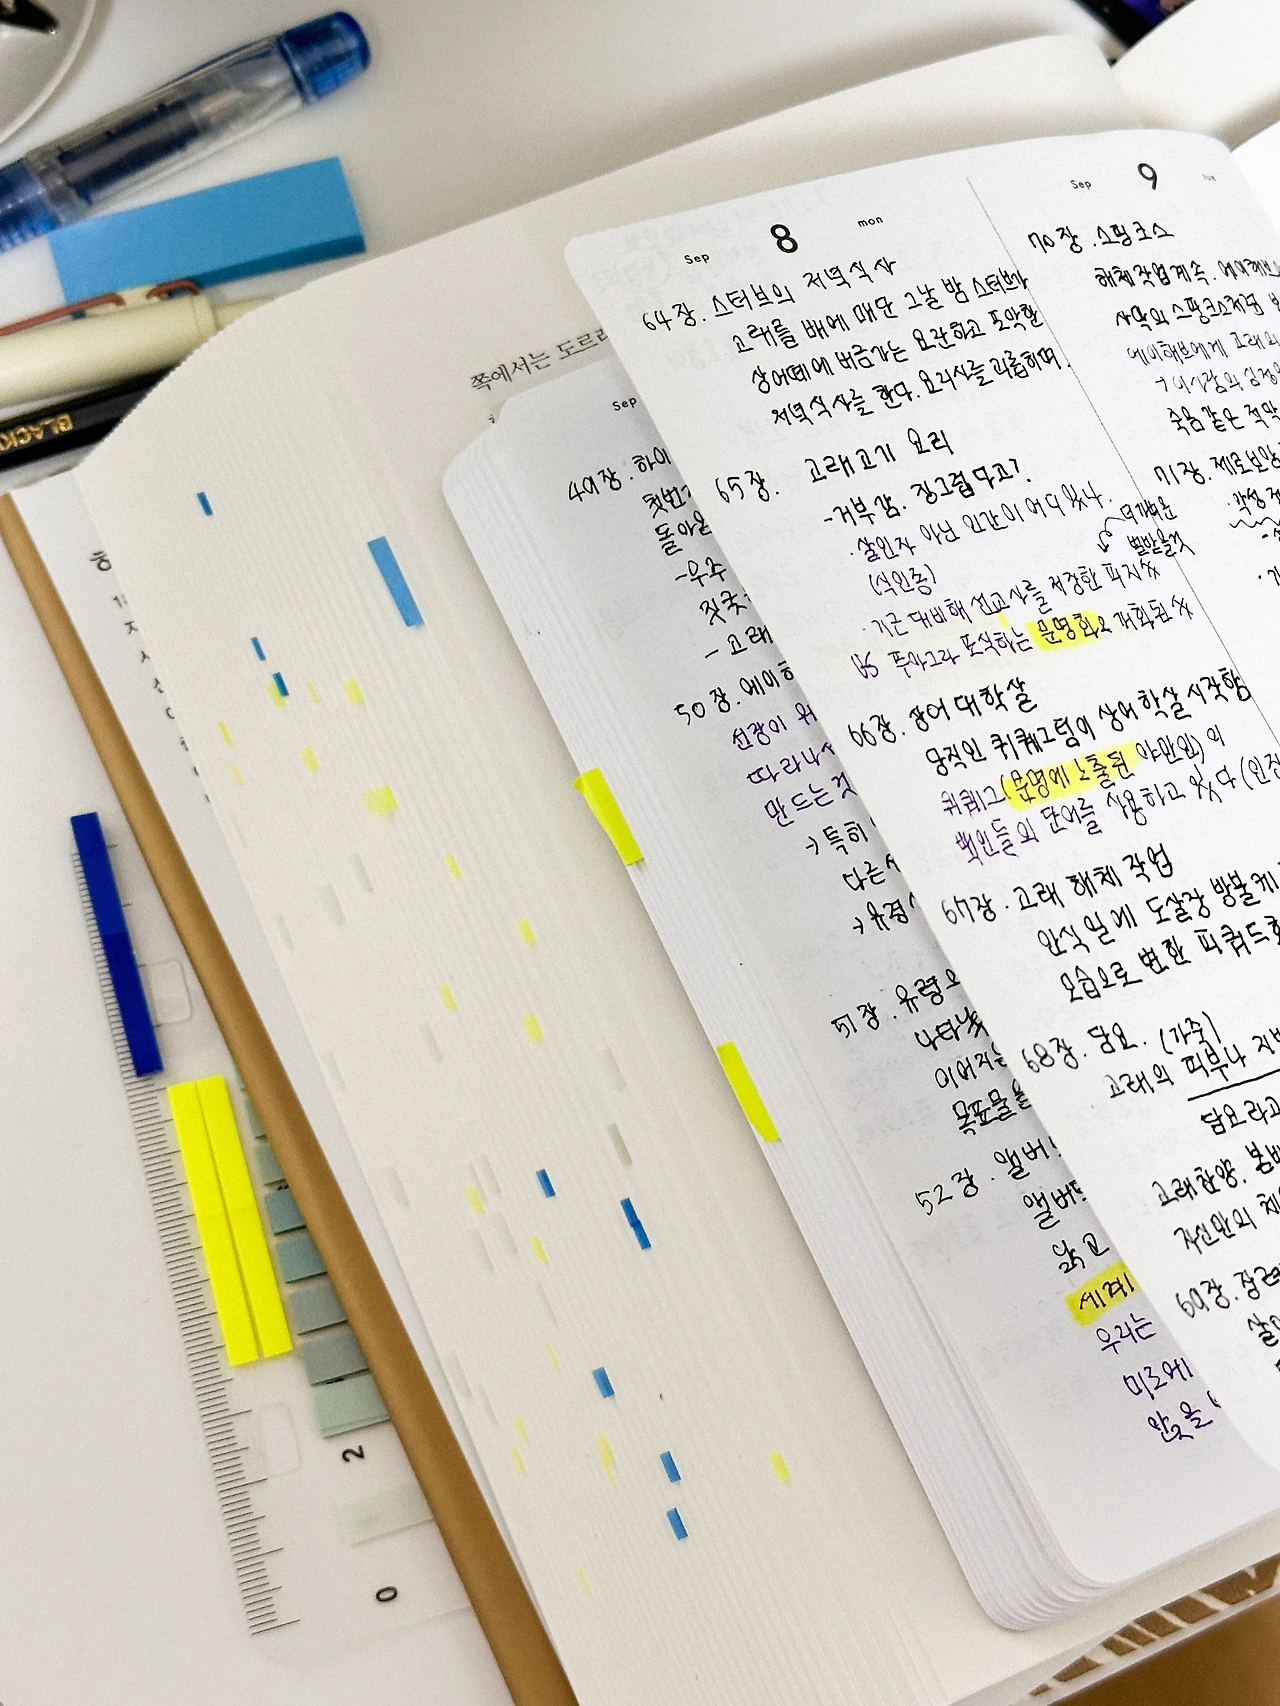 쪽에서는
BLACK
2
0
Sep
49장. 하이
첫번
돌아온
-우주
짓궂
- 고래
50장. 에이허
선장이 위
따라나서
만드는 것
→ 특히
다른
→ 유령
51장. 유령
나타난
이어지는
목표물을
52장. 앨버
앨버트
낡고
세계
우리는
미로에
Sep 8 mon
64장. 스터브의 저녁식사
고래를 배에 매단 그날 밤 스터브가
상어떼에 버금가는 요란하고 포악한
저녁식사를 한다. 요리사를 괴롭히며.
65장. 고래고기 요리
-거부감. 징그럽다고?
·살인자 아닌 인간이 어디 있나.
(식인종)
더 가벼운
벌받을 것
·기근 대비해 선교사를 저장한 피지
vs 푸아그라 포식하는 문명화 개화된
66장. 상어 대학살
당직인 퀴퀘그텀이 상어 학살 시작함
퀴퀘그(문명에 노출된 야만인)의
백인들의 단어를 사용하고 있다 (인진
67장. 고래 해체 작업
안식일에 도살장 방불케
모습으로 변한 피쿼드호
68장. 담요. (가죽)
고래의 피부나 지방
담요라고
고래찬양. 봄바
자신만의 체
69장. 장례
Sep 9
70장. 스핑크스
해체작업 계속. 에이허브
사막의 스핑크스처럼
에이허브에게 고래의
죽음같은 적막
71장. 제로보암